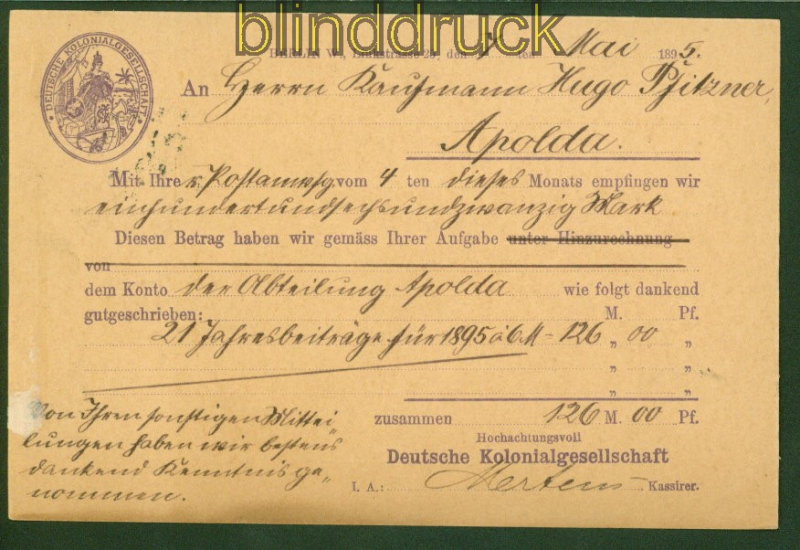 blinddruck
DEUTSCHE KOLONIALGESELLSCHAFT
BERLIN W., 25, den ten Mai 1895.
An Herrn Kaufmann Hugo Pfitzner,
Apolda.
Mit Ihrer Postanwsg vom 4 ten dieses Monats empfingen wir
einhundertundsechsundzwanzig Mark
Diesen Betrag haben wir gemäss Ihrer Aufgabe unter Hinzurechnung
von
dem Konto der Abteilung Apolda wie folgt dankend
gutgeschrieben: M. Pf.
21 Jahresbeiträge für 1895 à 6 M = 126 „ 00 „
„ „
„ „
zusammen 126 M. 00 Pf.
Von Ihren sonstigen Mittei-
lungen haben wir bestens
dankend Kenntnis ge-
nommen.
Hochachtungsvoll
Deutsche Kolonialgesellschaft
I. A.: Mertens Kassirer.